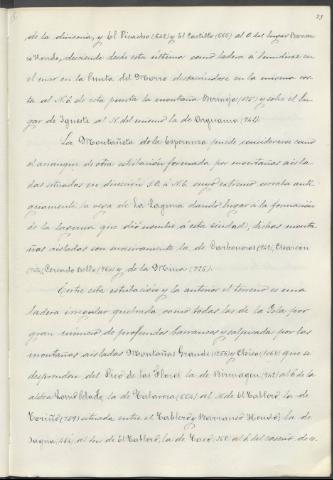 de la divisoria, y el Picacho (642) y El Castillo (666) al O. del lugar Barran-
co Hondo, decayendo desde este último como ladera á hundirse en
el mar en la Punta del Morro destacándose en la misma cos-
ta al N.E. de esta punta la montaña y sobre el lu-
gar de Igueste al N. del mismo la de
La Montañeta de la Esperanza puede considerarse como
el arranque de otra estribación formada por montañas aisla-
das situadas en dirección S.O. á N.E. cuyo extremo cerraba anti-
guamente la vega de La Laguna dando lugar á la formación
de la laguna que dió nombre á esta ciudad; dichas monta-
ñas aisladas son sucesivamente la de Carboneras
y de la
Entre esta estribación y la anterior el terreno es una
ladera irregular quebrada como todas las de la Isla por
gran número de profundos barrancos y salpicada por las
montañas aisladas Montaña Grande que se
desprenden del Pico de las Flores la de Birmagen al O. de la
aldea la de Talavera (664) al N. de El Tablero la de
(709) situada entre el Tablero y Barranco Hondo, la de
Jagua, (464) al Sur de El Tablero, la de Taco, al S. del caserío de